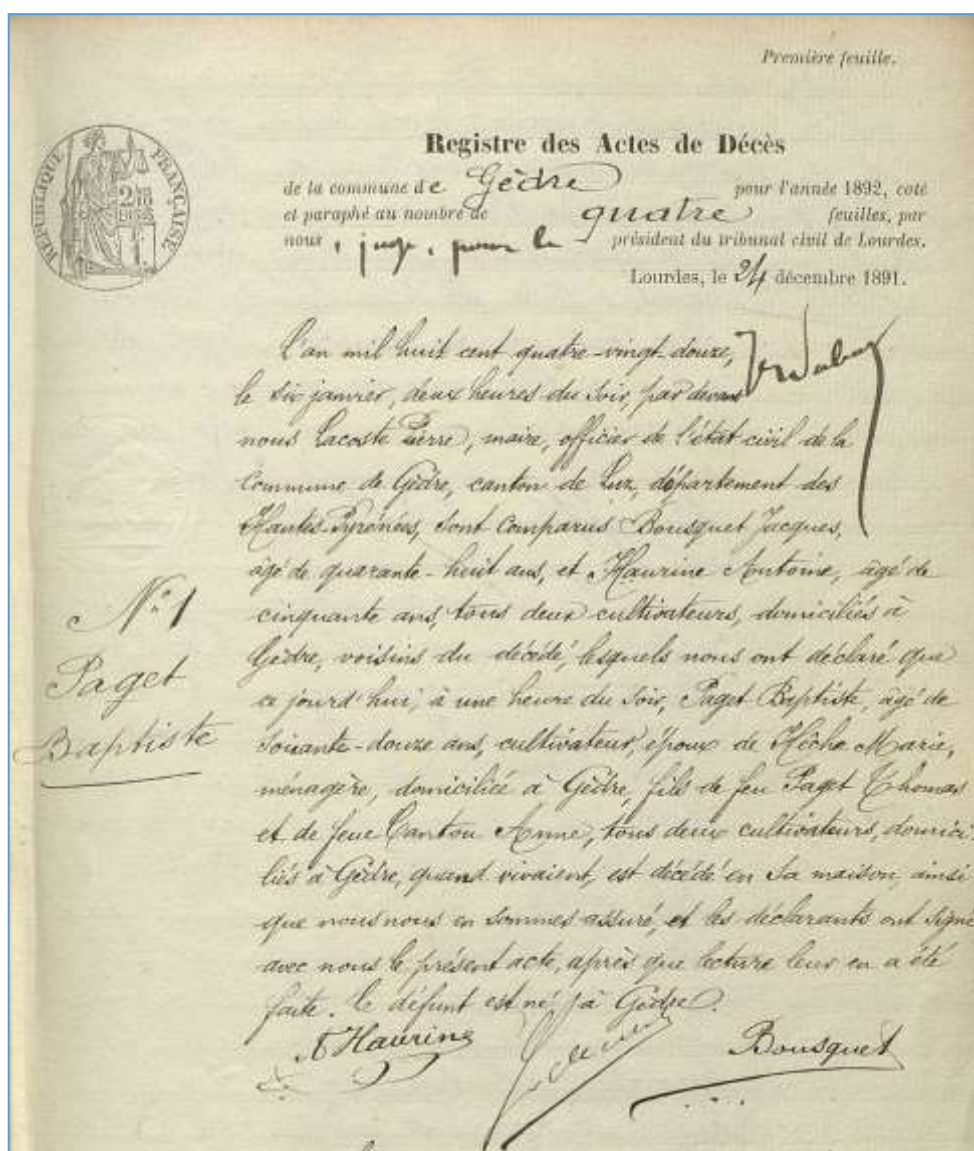 Première feuille.
RÉPUBLIQUE FRANÇAISE
Registre des Actes de Décès
de la commune de Gèdre pour l'année 1892, coté
et paraphé au nombre de quatre feuilles, par
nous, juge, pour le président du tribunal civil de Lourdes.
Lourdes, le 24 décembre 1891.
L'an mil huit cent quatre-vingt-douze,
le six janvier, deux heures du soir, par devant
nous Lacoste Pierre, maire, officier de l'état civil de la
commune de Gèdre, canton de Luz, département des
Hautes-Pyrénées, sont comparus Bousquet Jacques,
âgé de quarante-huit ans, et Haurine Antoine, âgé de
cinquante ans, tous deux cultivateurs, domiciliés à
Gèdre, voisins du décédé, lesquels nous ont déclaré que
ce jourd'hui, à une heure du soir, Paget Baptiste, âgé de
soixante-douze ans, cultivateur, époux de Hèche Marie,
ménagère, domiciliée à Gèdre, fils de feu Paget Thomas
et de feue Canton Anne, tous deux cultivateurs, domici-
liés à Gèdre, quand vivaient, est décédé en sa maison, ainsi
que nous nous en sommes assuré, et les déclarants ont signé
avec nous le présent acte, après que lecture leur en a été
faite. Le défunt est né à Gèdre.
N° 1
Paget
Baptiste
A Haurine
Bousquet